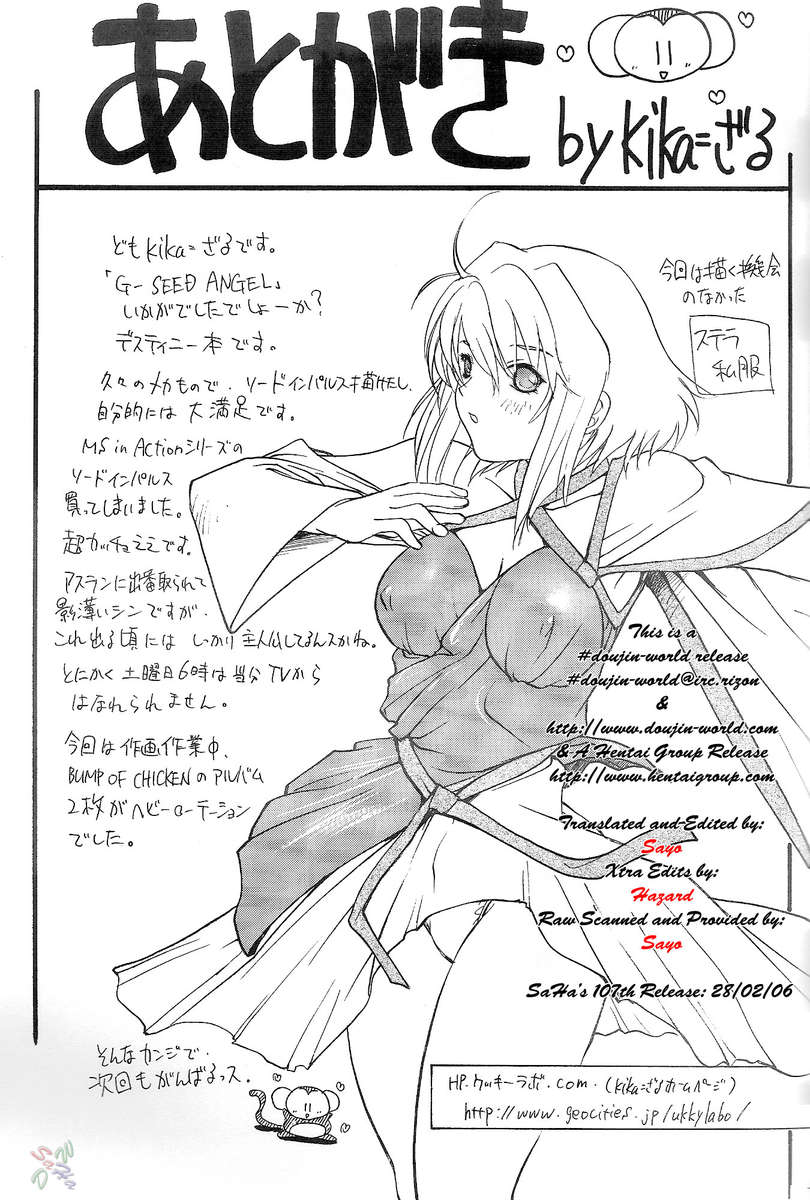 あとがき
by kika=ざる
どもkika=ざるです。
「G-SEED ANGEL」
いかがでしたでしょーか?
デスティニー本です。
久々のメカもので、ソードインパルス描けたし、
自分的には大満足です。
MS in Actionシリーズの
ソードインパルス
買ってしまいました。
超カッチョええです。
アスランに出番取られて
影薄いシンですが、
これ出る頃にはしっかり主人公してるんスかね。
とにかく土曜日6時は当分TVから
はなれられません。
今回は作画作業中、
BUMP OF CHICKENのアルバム
2枚がヘビーローテーション
でした。
そんなカンジで、
次回もがんばるっス。
今回は描く機会
のなかった
ステラ
私服
This is a
#doujin-world release
#doujin-world@irc.rizon
&
http://www.doujin-world.com
& A Hentai Group Release
http://www.hentaigroup.com
Translated and Edited by:
Sayo
Xtra Edits by:
Hazard
Raw Scanned and Provided by:
Sayo
SaHa's 107th Release: 28/02/06
HP.ウッキーラボ.com.(kika=ざるホームページ)
http://www.geocities.jp/ukkylabo/